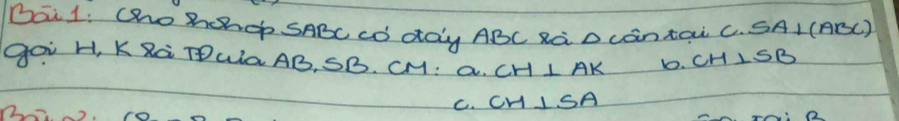 Bài 1: Cho hình chóp SABC có đáy ABC là Δ cân tại C. SA⊥(ABC)
gọi H, K là TĐ của AB, SB. CM: a. CH ⊥ AK b. CH ⊥ SB
c. CH ⊥ SA
Bài 2: